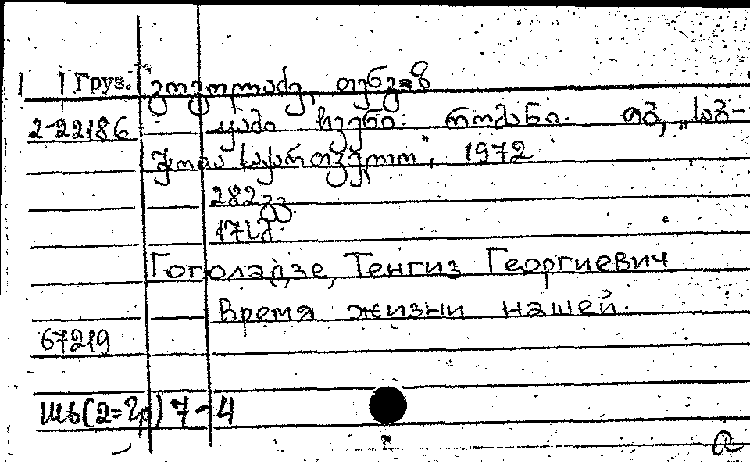 Груз. გოგოლაძე, თენგიზ
2-22186 ჟამი ჩვენი. რომანი. თბ., „საბ-
ჭოთა საქართველო", 1972
282 გვ.
17 სმ.
Гоголадзе, Тенгиз Георгиевич
Время жизни нашей.
67219
Шь(2=Гр) 7-4